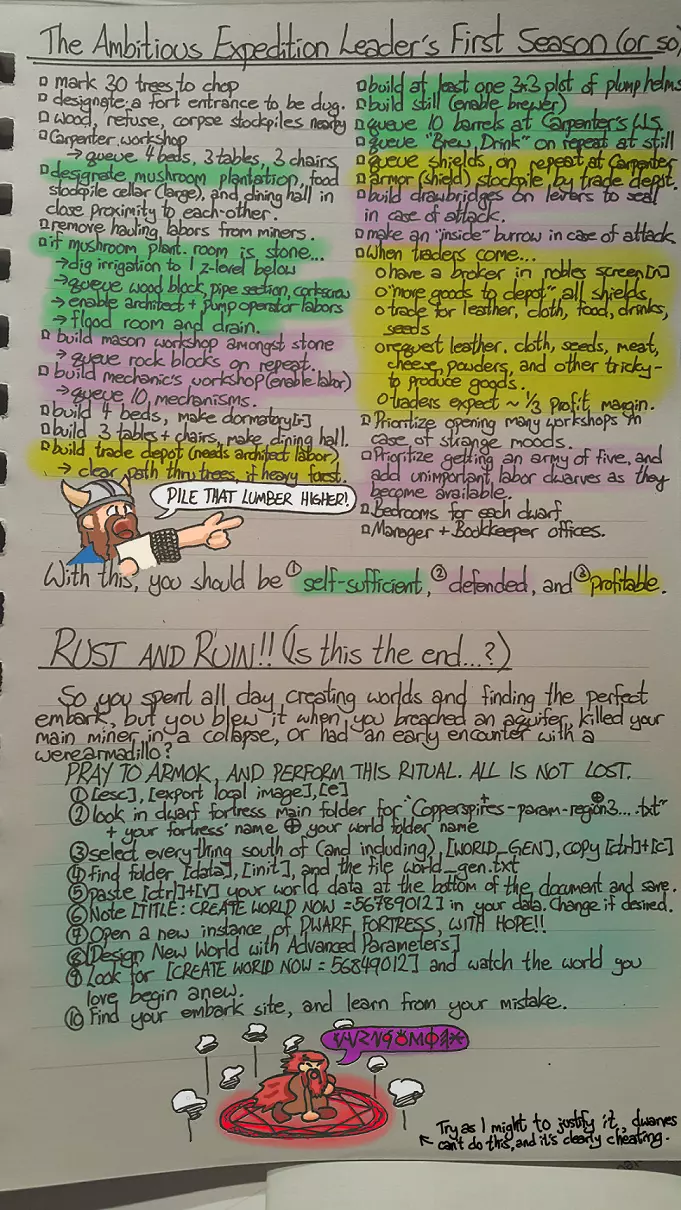 The Ambitious Expedition Leader's First Season (or so)
▫ mark 30 trees to chop
▫ designate a fort entrance to be dug.
▫ wood, refuse, corpse stockpiles nearby
▫ Carpenter workshop
→ queue 4 beds, 3 tables, 3 chairs
▫ designate mushroom plantation, food
stockpile cellar (large), and dining hall in
close proximity to each-other.
▫ remove hauling labors from miners.
▫ if mushroom plant. room is stone...
→ dig irrigation to 1 z-level below
→ queue wood block, pipe section, corkscrew
→ enable architect + pump operator labors
→ flood room and drain.
▫ build mason workshop amongst stone
→ queue rock blocks on repeat.
▫ build mechanic's workshop (enable labor)
→ queue 10 mechanisms.
▫ build 4 beds, make dormatory[r]
▫ build 3 tables + chairs, make dining hall.
▫ build trade depot (needs architect labor)
→ clear path thru trees, if heavy forest.
PILE THAT LUMBER HIGHER!
▫ build at least one 3x3 plot of plump helms
▫ build still (enable brewer)
▫ queue 10 barrels at Carpenter's W.S.
▫ queue "Brew Drink" on repeat at still
▫ queue shields, on repeat at Carpenter
▫ armor (shield) stockpile by trade depot.
▫ build drawbridges on levers to seal
in case of attack.
▫ make an "inside" burrow in case of attack
▫ When traders come...
o have a broker in nobles screen[n]
o "move goods to depot" all shields
o trade for leather, cloth, food, drinks,
seeds
o request leather, cloth, seeds, meat,
cheese, powders, and other tricky-
to produce goods.
o traders expect ~ 1/3 profit margin.
▫ Prioritize opening many workshops in
case of strange moods.
▫ Prioritize getting an army of five, and
add unimportant labor dwarves as they
become available.
▫ Bedrooms for each dwarf
▫ Manager + Bookkeeper offices.
With this, you should be ① self-sufficient, ② defended, and ③ profitable.
RUST AND RUIN!! (Is this the end...?)
So you spent all day creating worlds and finding the perfect
embark, but you blew it when you breached an aquifer, killed your
main miner in a collapse, or had an early encounter with a
werearmadillo?
PRAY TO ARMOK, AND PERFORM THIS RITUAL. ALL IS NOT LOST.
① [esc], [export local image], [e]
② look in dwarf fortress main folder for "Copperspires+-param-region3⊕....txt"
+ your fortress' name ⊕ your world folder name
③ select everything south of (and including), [WORLD_GEN], copy [ctrl]+[c]
④ find folder [data], [init], and the file world_gen.txt
⑤ paste [ctrl]+[v] your world data at the bottom of the document and save.
⑥ Note [TITLE: CREATE WORLD NOW =56789012] in your data. Change if desired.
⑦ Open a new instance of DWARF FORTRESS, WITH HOPE!!
⑧ [Design New World with Advanced Parameters]
⑨ Look for [CREATE WORLD NOW = 56849012] and watch the world you
love begin anew.
⑩ Find your embark site, and learn from your mistake.
Try as I might to justify it, dwarves
↖ can't do this, and it's clearly cheating.